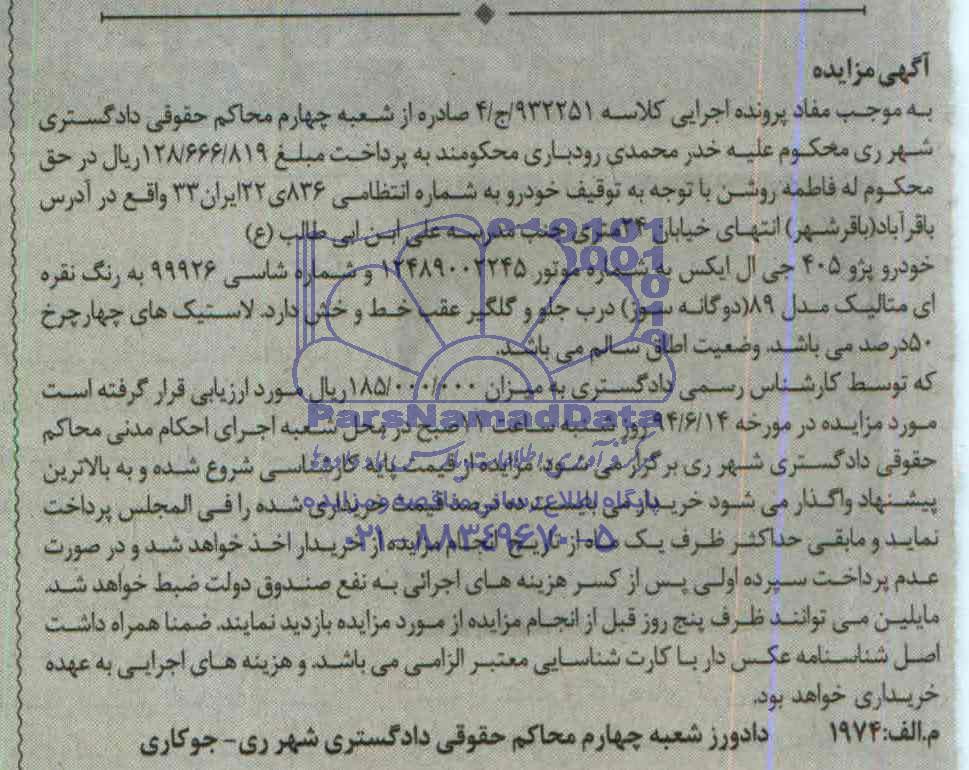 آگهی مزایده
به موجب مفاد پرونده اجرایی کلاسه ۹۳۲۲۵۱/ج/۴ صادره از شعبه چهارم محاکم حقوقی دادگستری
شهر ری محکوم علیه خدر محمدی رودباری محکومند به پرداخت مبلغ ۱۲۸/۶۶۶/۸۱۹ریال در حق
محکوم له فاطمه روشن با توجه به توقیف خودرو به شماره انتظامی ۸۳۶ی۲۲ایران۳۳ واقع در آدرس
باقرآباد(باقرشهر) انتهای خیابان ۲۴متری جنب مدرسه علی ابن ابی طالب (ع)
خودرو پژو ۴۰۵ جی ال ایکس به شماره موتور ۱۲۴۸۹۰۰۲۲۴۵ و شماره شاسی ۹۹۹۲۶ به رنگ نقره
ای متالیک مدل ۸۹(دوگانه سوز) درب جلو و گلگیر عقب خط و خش دارد. لاستیک های چهارچرخ
۵۰درصد می باشد. وضعیت اطاق سالم می باشد.
که توسط کارشناس رسمی دادگستری به میزان ۱۸۵/۰۰۰/۰۰۰ریال مورد ارزیابی قرار گرفته است
مورد مزایده در مورخه ۹۴/۶/۱۴ روز شنبه ساعت ۱۱ صبح در محل شعبه اجرای احکام مدنی محاکم
حقوقی دادگستری شهر ری برگزار می شود. مزایده از قیمت پایه کارشناسی شروع شده و به بالاترین
پیشنهاد واگذار می شود خریدار می بایست ده درصد قیمت خریداری شده را فی المجلس پرداخت
نماید و مابقی حداکثر ظرف یک ماه از تاریخ انجام مزایده از خریدار اخذ خواهد شد و در صورت
عدم پرداخت سپرده اولی پس از کسر هزینه های اجرائی به نفع صندوق دولت ضبط خواهد شد.
مایلین می توانند ظرف پنج روز قبل از انجام مزایده از مورد مزایده بازدید نمایند. ضمنا همراه داشت
اصل شناسنامه عکس دار با کارت شناسایی معتبر الزامی می باشد. و هزینه های اجرایی به عهده
خریداری خواهد بود.
م.الف:۱۹۷۴ دادورز شعبه چهارم محاکم حقوقی دادگستری شهر ری- جوکاری
ParsNamadData
پایگاه اطلاع رسانی مناقصه و مزایده
۰۲۱-۸۸۳۴۹۶۷۰-۵